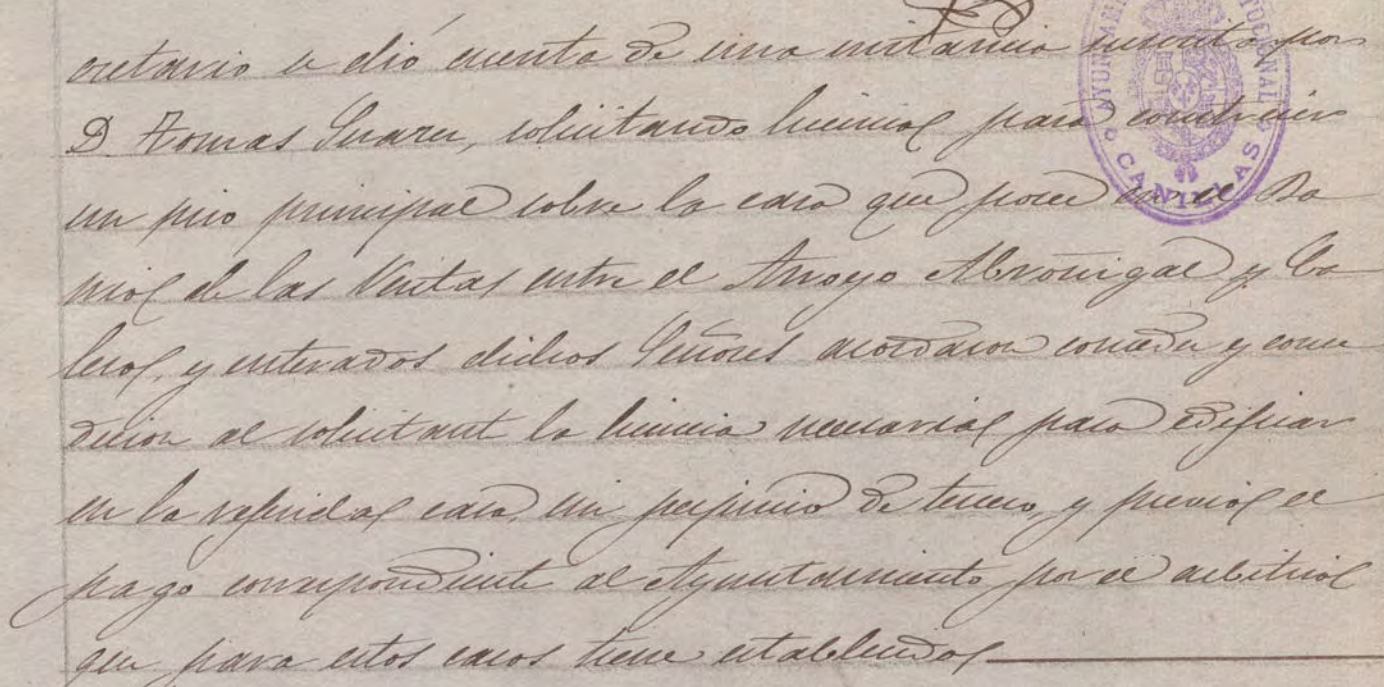 cretario se dió cuenta de una instancia suscrita por
D. Tomas Suarez, solicitando licencia para construir
un piso principal sobre la casa que posee en el Ba
rrio de las Ventas entre el Arroyo Abroñigal y Ca
lero, y enterados dichos Señores acordaron conceder y conce
dieron al solicitante la licencia necesaria para edificar
en la referida casa, sin perjuicio de tercero, y previo el
pago correspondiente al Ayuntamiento por el arbitrio
que para estos casos tiene establecido
CANILLAS